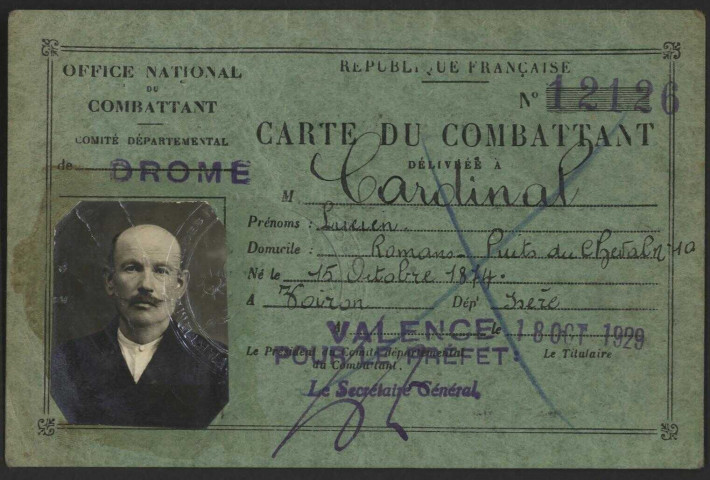 OFFICE NATIONAL
DU
COMBATTANT
COMITÉ DÉPARTEMENTAL
de DROME
RÉPUBLIQUE FRANÇAISE
N° 12126
CARTE DU COMBATTANT
DÉLIVRÉE À
M Cardinal
Prénoms : Lucien.
Domicile : Romans - Puits du Cheval n° 10
Né le 15 Octobre 1874.
A Voiron Dépt Isère
A VALENCE le 18 OCT 1929
Le Président du Comité départemental
du Combattant.
POUR LE PRÉFET:
Le Titulaire
Le Secrétaire Général,